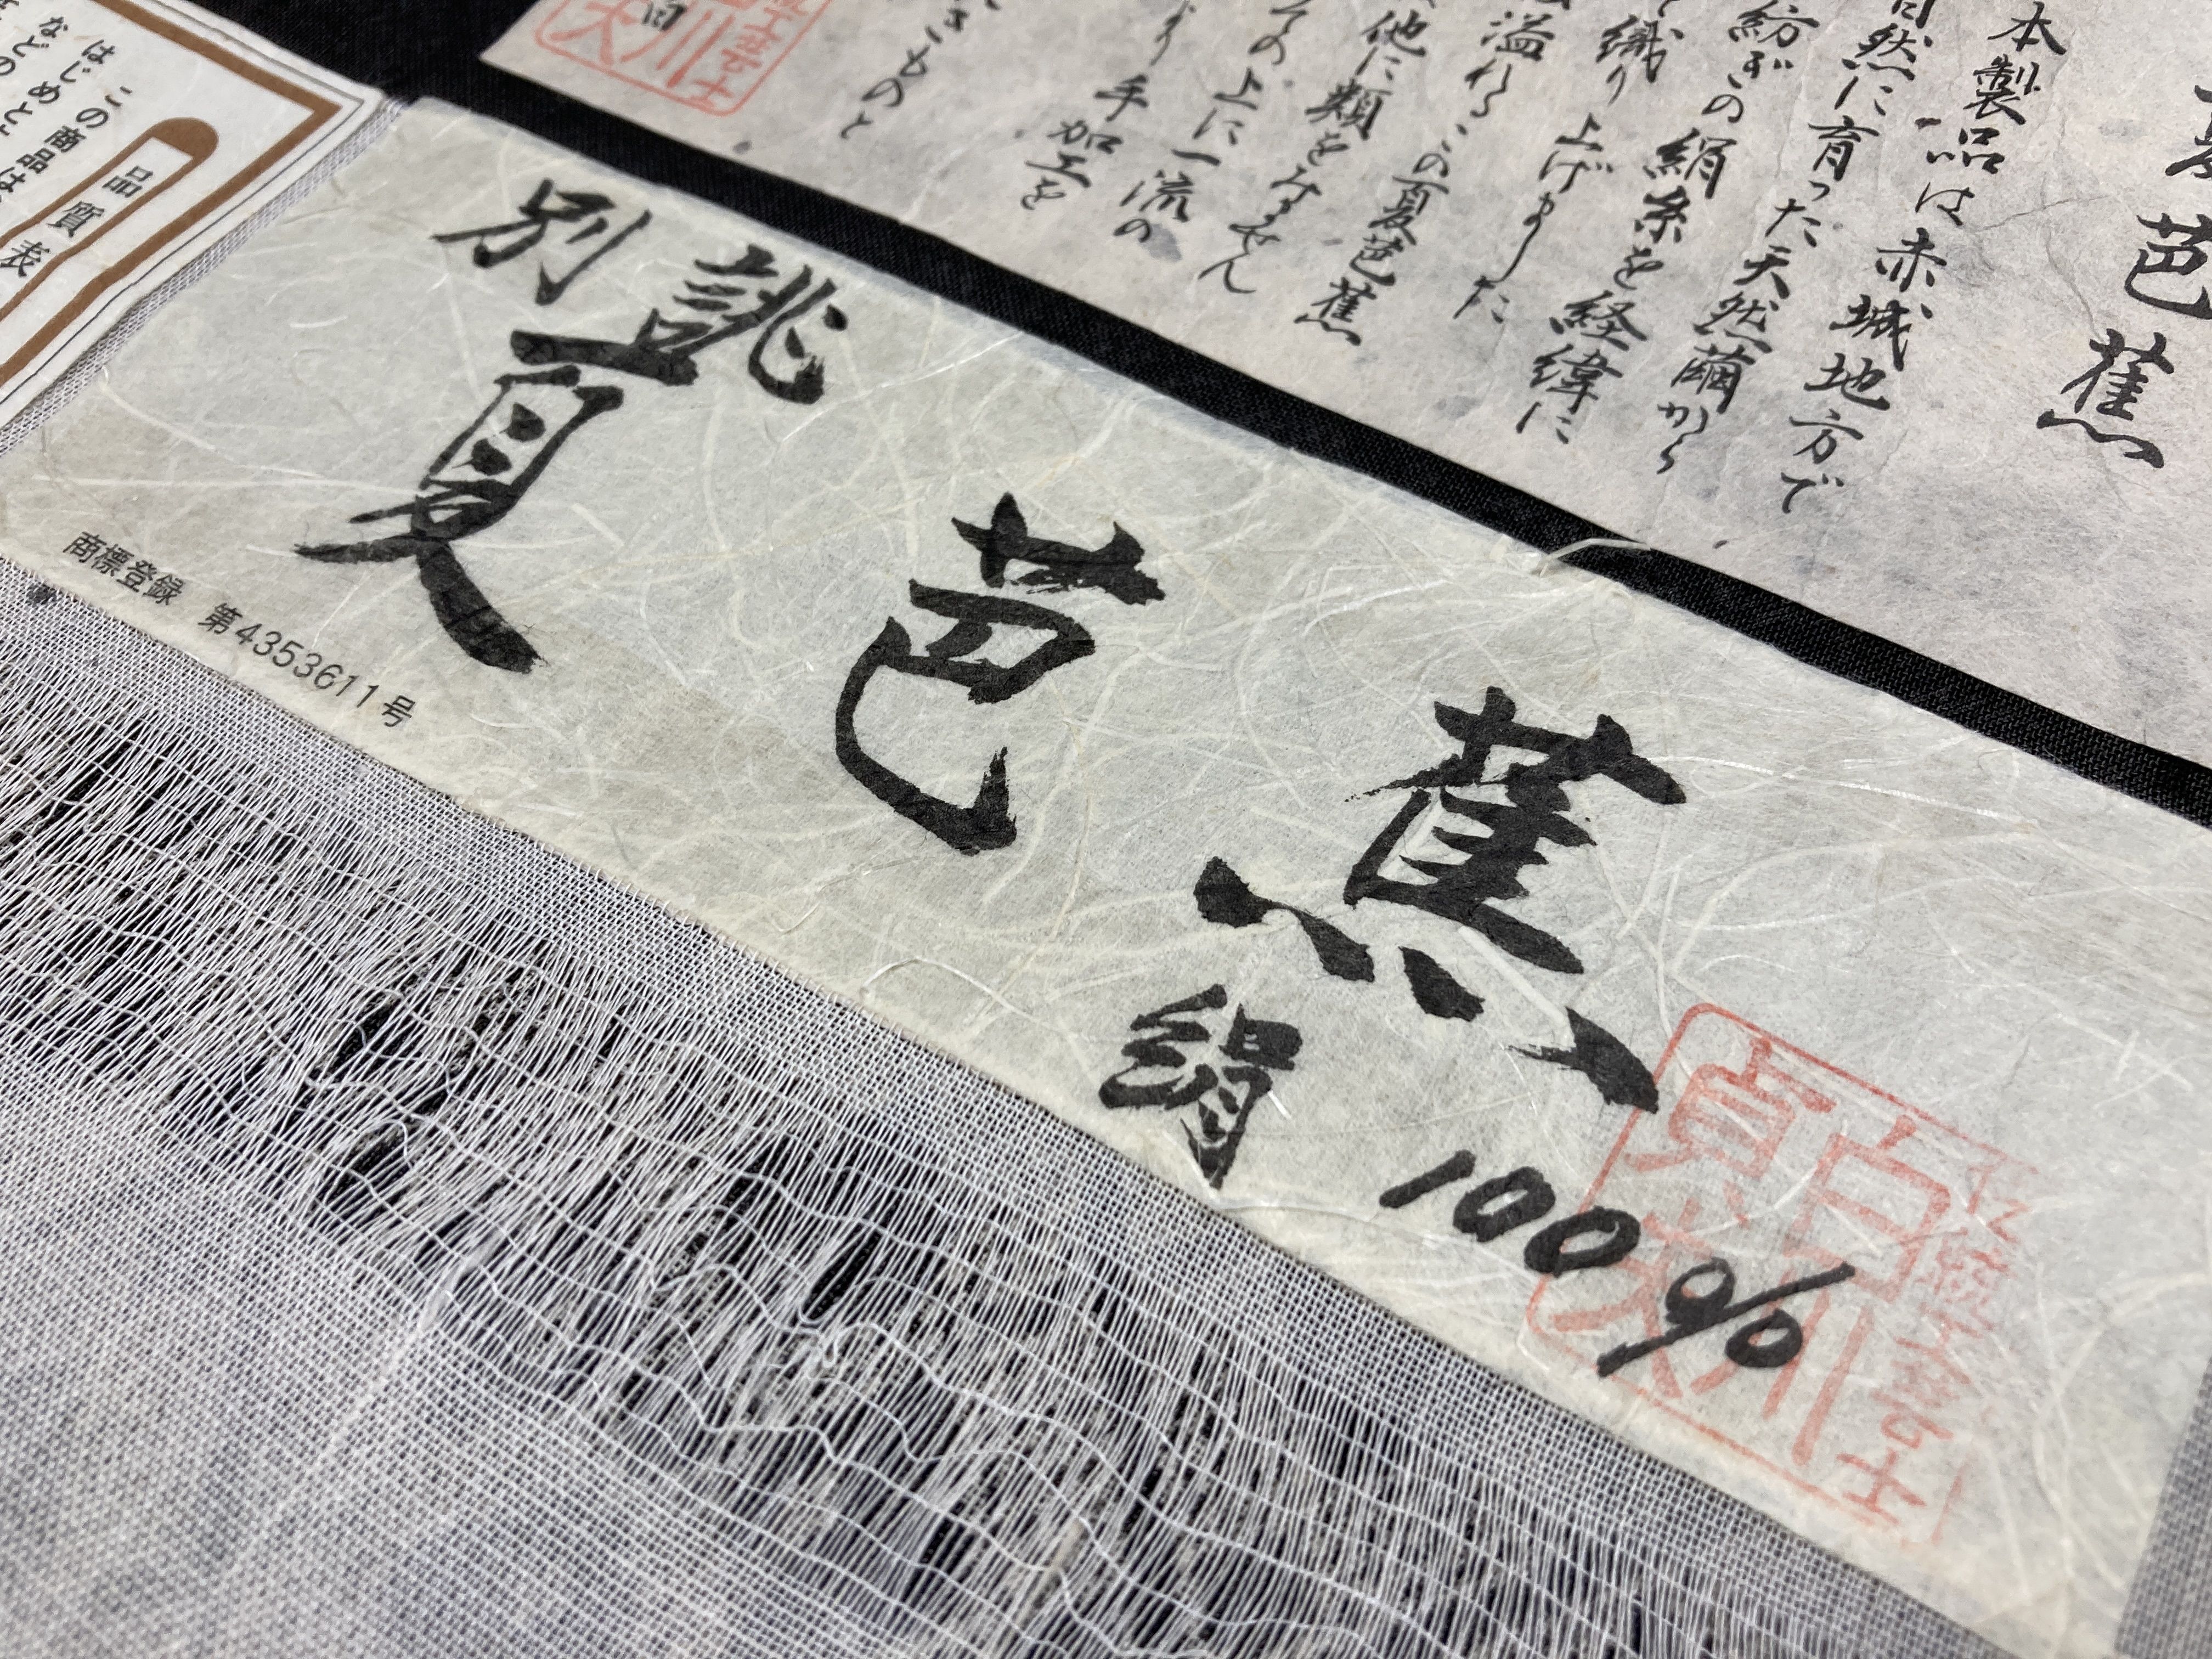 別誂
夏芭蕉
絹100%
商標登録 第4353611号
貞白
伝統工芸士
太川
芭蕉
本製品は赤城地方で
自然に育った天然繭から
紡ぎの絹糸を経緯に
織り上げました
溢れるこの夏芭蕉
他に類をみません
ての上に一流の
より手加工を
きものと
品質表
この商品は
はじめとし
などの